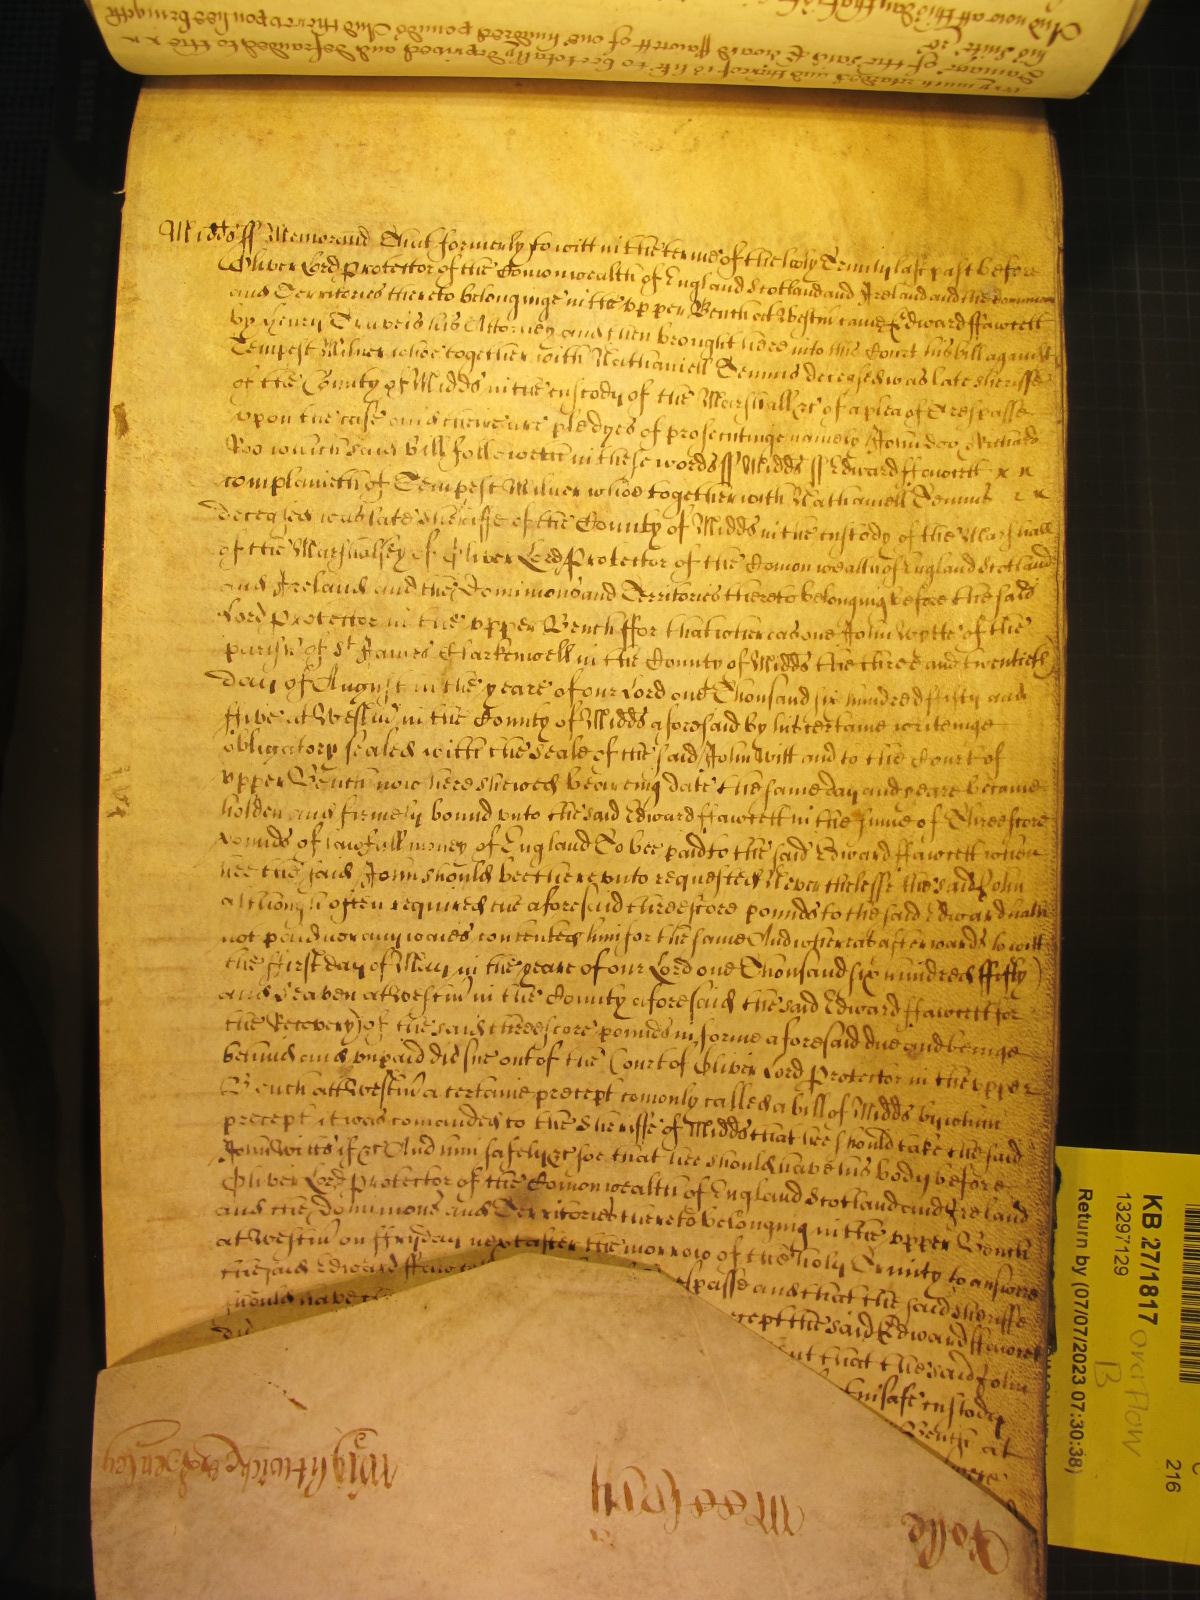 very much retarded and thereof is like to bee totally deprived and defrauded to the x x
Damage of the said Edward ffawcett of one hundred pounds And thereupon hee bringeth
his suite &c
And now att this day that is
Midds ss Memorand That formerly to witt in the terme of the holy Trinity last past before
Oliver Lord Protector of the Comonwealth of England Scotland and Ireland and the Dominions
and Territories thereto belonginge in the upper Bench at Westm came Edward ffawcett
by Henry Travers his Attorney and then brought here into this Court his bill against
Tempest Milner whoe together with Nathaniell Temms deceased was late Sheriffe
of the County of Midds in the custody of the Marshall &c of a plea of Trespasse
upon the case and there are pledges of prosecutinge namely John Doo Richard
Roo which said bill followeth in these words ss Midds ss Edward ffawcett x x
complaineth of Tempest Milner whoe together with Nathaniell Temms
deceased was late Sheriffe of the County of Midds in the custody of the Marshall
of the Marshalsey of Oliver Lord Protector of the Comonwealth of England Scotland
and Ireland and the Dominions and Territories thereto belonging before the said
Lord Protector in the upper Bench ffor that whereas one John Wytte of the
parish of St James Clarkenwell in the County of Midds the three and twentieth
day of August in the yeare of our Lord one Thousand six hundred fifty and
ffive at Westm in the County of Midds aforesaid by his certaine writeinge
obligatory sealed with the seale of the said John Witt and to the Court of
upper Bench now here shewed beareing date the same day and yeare became
holden and firmely bound unto the said Edward ffawcett in the summe of Threescore
pounds of lawfull money of England To bee paid to the said Edward ffawcett when
hee the said John should bee thereunto requested Neverthelesse the said John
although often required the aforesaid threescore pounds to the said Edward hath
not paid nor any waies contented him for the same And whereas afterwards to witt
the ffirst day of May in the yeare of our Lord one Thousand six hundred ffifty
and seaven at Westm in the County aforesaid the said Edward ffawcett for
the Recovery of the said threescore pounds in forme aforesaid due and beinge
behind and unpaid did sue out of the Court of Oliver Lord Protector in the upper
Bench att Westm a certaine precept comonly called a bill of Midds by which
precept it was comanded to the Sheriffe of Midds that hee should take the said
John Witts if &c And him safely &c soe that hee should have his body before
Oliver Lord Protector of the Comonwealth of England Scotland and Ireland
and the Dominions and Territories thereto belonging in the upper Bench
at Westm on ffryday next after the morrow of the holy Trinity to answere
the said Edward ffaw spasse and that the said Sheriffe
should have the cept the said Edward ffawcett
did ut that the said John
in safe custody
Bench at
Rolle
Wightwicke
KB 27/1817
13297129
Return by (07/07/2023 07:30:38)
overflow
B
216